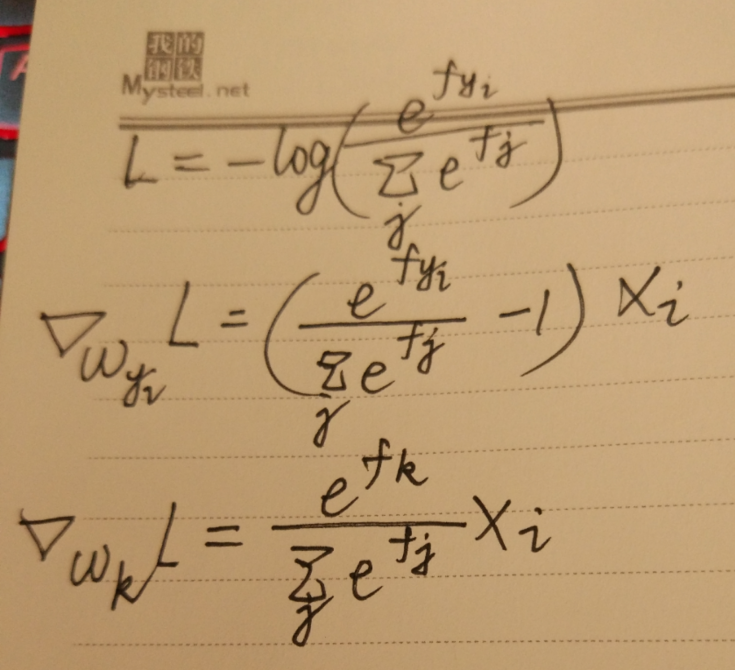 我的
钢铁
Mysteel.net
L = -log(e^{f_{y_i}} / Σ_j e^{f_j})
∇_{w_{y_i}} L = (e^{f_{y_i}} / Σ_j e^{f_j} - 1) x_i
∇_{w_k} L = e^{f_k} / Σ_j e^{f_j} x_i